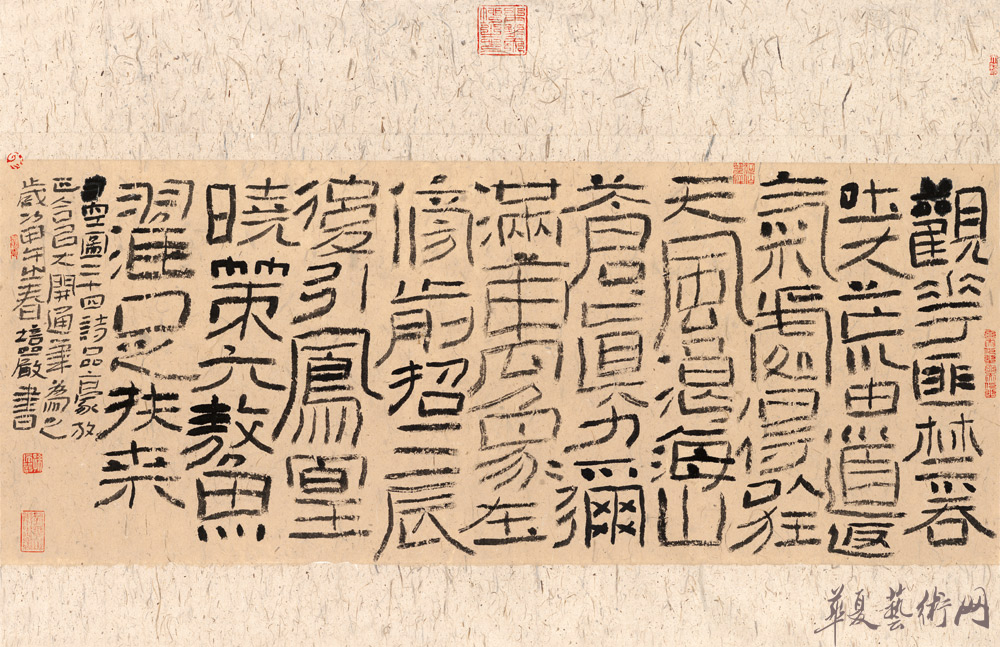 觀花匪禁吞
吐大荒由道返
氣處得以狂
天風浪=海山
蒼=眞力彌
滿萬象在
傍前招三辰
後引鳳皇
曉策六鰲
濯足扶桑
司空圖二十四詩品豪放
正合㠯大開通筆為之
歲次甲午之春培嚴書
華夏藝術网